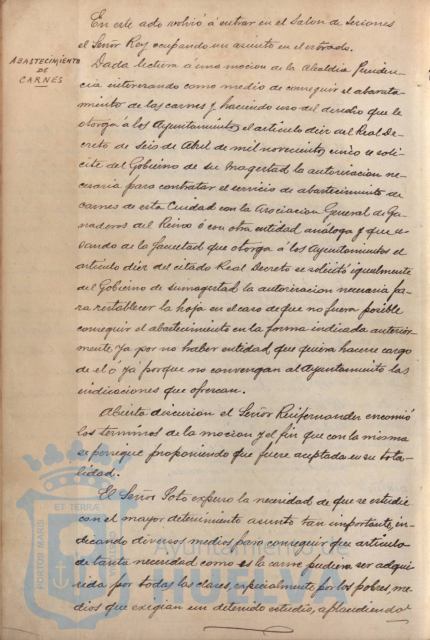 En este acto volvió á entrar en el Salon de Sesiones
el Señor Rey ocupando un asiento en el estrado.
ABASTECIMIENTO
DE
CARNES
Dada lectura á una mocion de la Alcaldia Presiden-
cia interesando como medio de conseguir el abarata-
miento de las carnes y haciendo uso del derecho que le
otorga á los Ayuntamientos el articulo diez del Real De-
creto de seis de Abril de mil novecientos cinco se soli-
cite del Gobierno de su Magestad la autorizacion ne-
cesaria para contratar el servicio de abastecimiento de
carnes de esta Ciudad con la Asociacion General de Ga-
naderos del Reino ó con otra entidad análoga y que u-
sando de la facultad que otorga á los Ayuntamientos el
articulo diez del citado Real Decreto se solicite igualmente
del Gobierno de su magestad la autorizacion necesaria pa-
ra restablecer la hoja en el caso de que no fuera posible
conseguir el abastecimiento en la forma indicada anterior-
mente, ya por no haber entidad que quiera hacerse cargo
de el ó ya porque no convengan al Ayuntamiento las
indicaciones que ofrezcan.
Abierta discusion el Señor Recifernandez encomió
los terminos de la mocion y el fin que con la misma
se persigue proponiendo que fuese aceptada en su tota-
lidad.
El Señor Soto expuso la necesidad de que se estudie
con el mayor detenimiento asunto tan importante, in-
dicando diversos medios para conseguir que articulo
de tanta necesidad como es la carne pudiera ser adqui-
rida por todas las clases, especialmente por los pobres, me-
dios que exigian un detenido estudio, aplaudiendo
PORTUS MARIS
ET TERRÆ
Ayuntamiento de
HUELVA